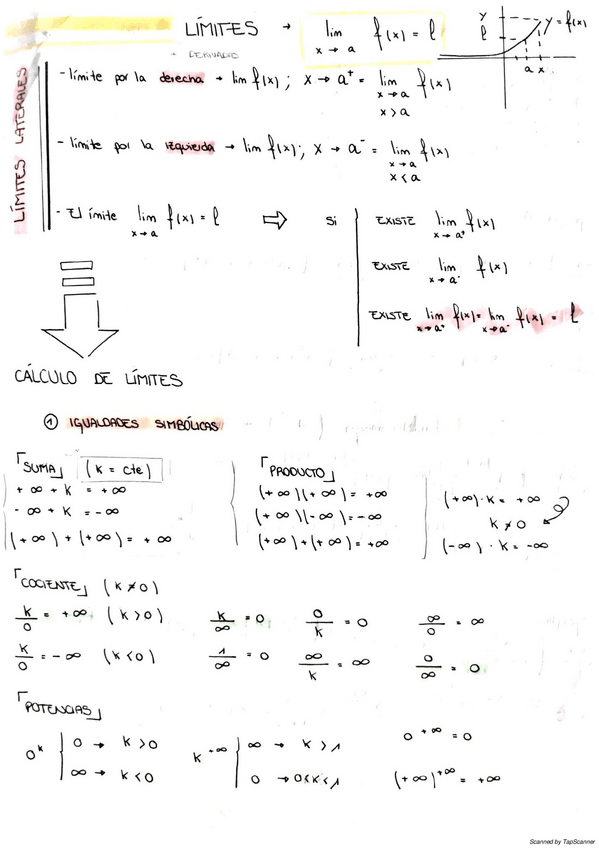 LÍMITES → lim f(x) = l
x → a
→ DERIVADAS
y
l
y = f(x)
a x
LÍMITES LATERALES
- límite por la derecha → lim f(x); x → a⁺ = lim f(x)
x → a
x > a
- límite por la izquierda → lim f(x); x → a⁻ = lim f(x)
x → a
x < a
- El ímite lim f(x) = l ⇒ si
x → a
EXISTE lim f(x)
x → a⁺
EXISTE lim f(x)
x → a⁻
EXISTE lim f(x) = lim f(x) = l
x → a⁺ x → a⁻
CÁLCULO DE LÍMITES
① IGUALDADES SIMBÓLICAS
「SUMA」 (k = cte)
+∞ + k = +∞
-∞ + k = -∞
(+∞) + (+∞) = +∞
「PRODUCTO」
(+∞)(+∞) = +∞
(+∞)(-∞) = -∞
(+∞)+(+∞) = +∞
(+∞)·k = +∞
k ≠ 0
(-∞)·k = -∞
「COCIENTE」 (k ≠ 0)
k/0 = +∞ (k > 0) k/∞ = 0 0/k = 0 ∞/0 = ∞
k/0 = -∞ (k < 0) 1/∞ = 0 ∞/k = ∞ 0/∞ = 0
「POTENCIAS」
0^k { 0 → k > 0
∞ → k < 0
k^+∞ { ∞ → k > 1
0 → 0<k<1
0^+∞ = 0
(+∞)^+∞ = +∞
Scanned by TapScanner